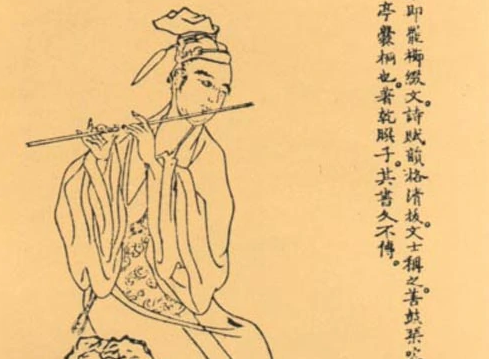 即罷櫛綴文。詩賦韻格清拔。文士稱之。善鼓琴
亭爨桐也。著乾𦠆子。其書久不傳。